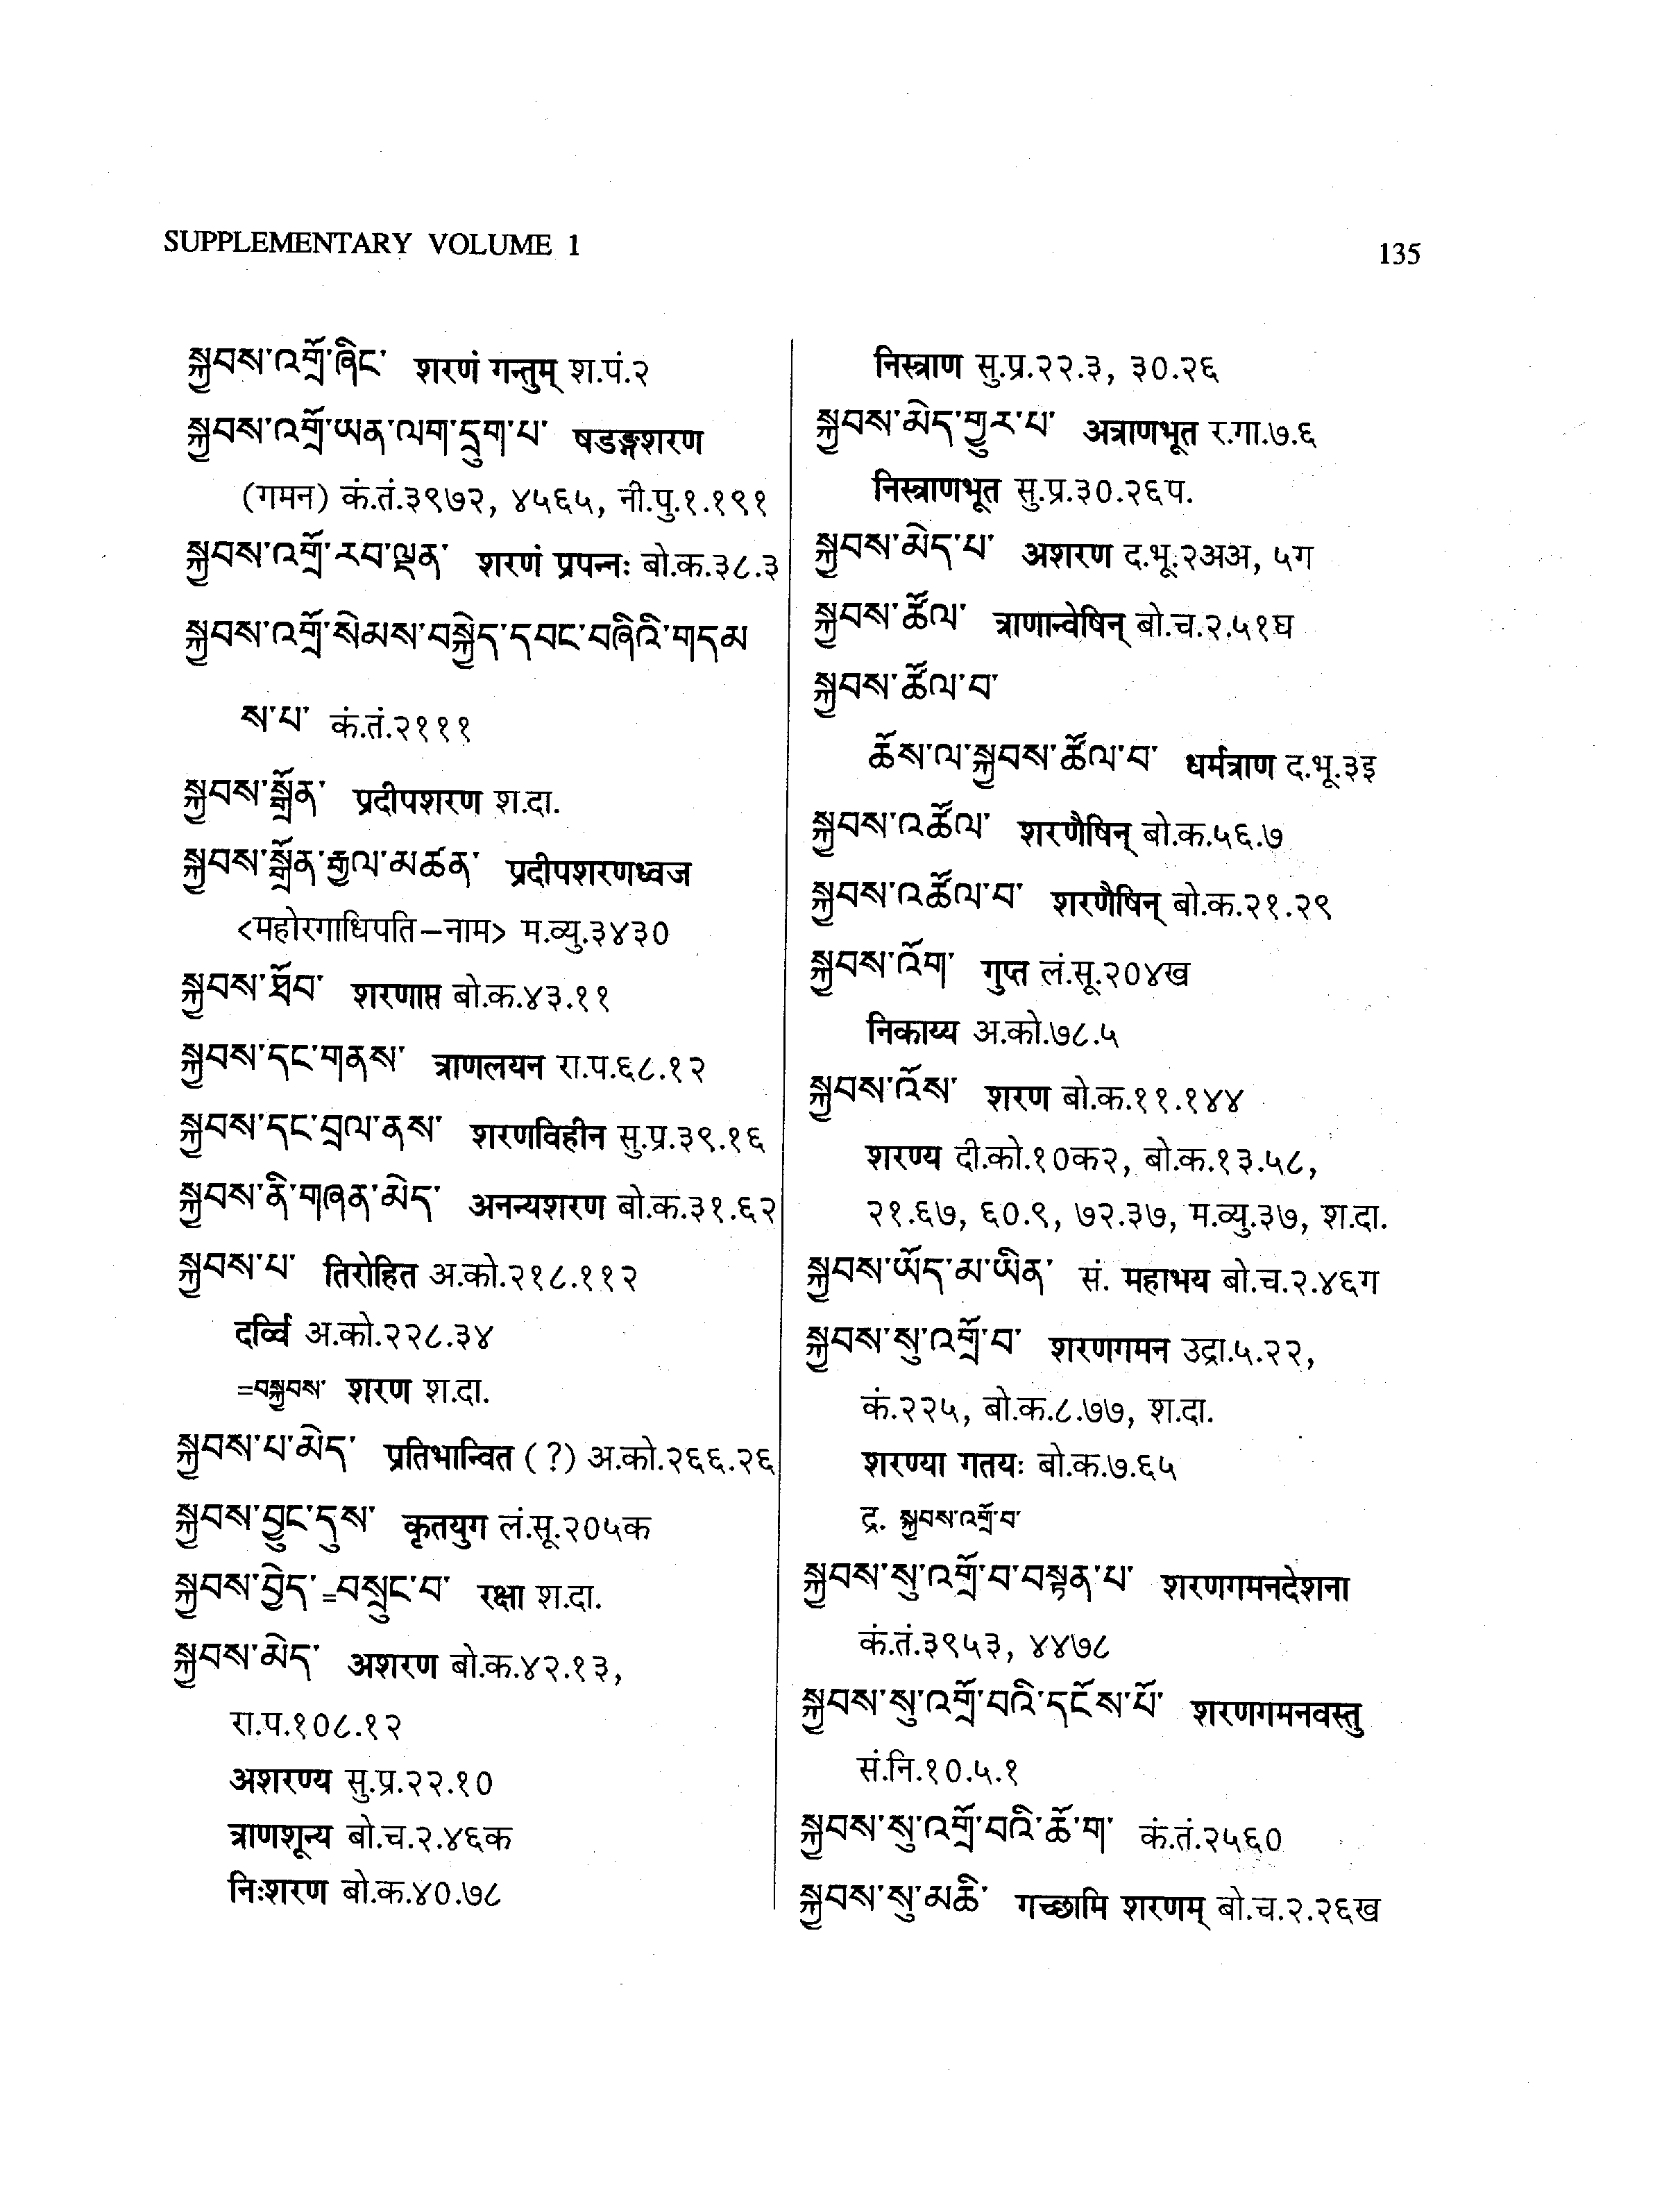 SUPPLEMENTARY VOLUME 1
135
སྐྱབས་འགྲོ་ཞིང་ शरणं गन्तुम् श.पं.२
སྐྱབས་འགྲོ་ཡན་ལག་དྲུག་པ་ षडङ्गशरण
(गमन) कं.तं.३९७२, ४५६५, नी.पु.१.१९१
སྐྱབས་འགྲོ་རབ་ལྡན་ शरणं प्रपन्नः बो.क.३८.३
སྐྱབས་འགྲོ་སེམས་བསྐྱེད་དབང་བཞིའི་གདམ
ས་པ་ कं.तं.२१११
སྐྱབས་སྒྲོན་ प्रदीपशरण श.दा.
སྐྱབས་སྒྲོན་རྒྱལ་མཚན་ प्रदीपशरणध्वज
<महोरगाधिपति–नाम> म.व्यु.३४३०
སྐྱབས་ཐོབ་ शरणाप्त बो.क.४३.११
སྐྱབས་དང་གནས་ त्राणलयन रा.प.६८.१२
སྐྱབས་དང་བྲལ་ནས་ शरणविहीन सु.प्र.३९.१६
སྐྱབས་ནི་གཞན་མེད་ अनन्यशरण बो.क.३१.६२
སྐྱབས་པ་ तिरोहित अ.को.२१८.११२
दर्व्वि अ.को.२२८.३४
=བསྐྱབས་ शरण श.दा.
སྐྱབས་པ་མེད་ प्रतिभान्वित (?) अ.को.२६६.२६
སྐྱབས་བྱུང་དུས་ कृतयुग लं.सू.२०५क
སྐྱབས་བྱེད་=བསྲུང་བ་ रक्षा श.दा.
སྐྱབས་མེད་ अशरण बो.क.४२.१३,
रा.प.१०८.१२
अशरण्य सु.प्र.२२.१०
त्राणशून्य बो.च.२.४६क
निःशरण बो.क.४०.७८
निस्त्राण सु.प्र.२२.३, ३०.२६
སྐྱབས་མེད་གྱུར་པ་ अत्राणभूत र.गा.७.६
निस्त्राणभूत सु.प्र.३०.२६प.
སྐྱབས་མེད་པ་ अशरण द.भू.२अअ, ५ग
སྐྱབས་ཚོལ་ त्राणान्वेषिन् बो.च.२.५१घ
སྐྱབས་ཚོལ་བ་
ཆོས་ལ་སྐྱབས་ཚོལ་བ་ धर्मत्राण द.भू.३इ
སྐྱབས་འཚོལ་ शरणैषिन् बो.क.५६.७
སྐྱབས་འཚོལ་བ་ शरणैषिन् बो.क.२१.२९
སྐྱབས་འོག་ गुप्त लं.सू.२०४ख
निकाय्य अ.को.७८.५
སྐྱབས་འོས་ शरण बो.क.११.१४४
शरण्य दी.को.१०क२, बो.क.१३.५८,
२१.६७, ६०.९, ७२.३७, म.व्यु.३७, श.दा.
སྐྱབས་ཡོད་མ་ཡིན་ सं. महाभय बो.च.२.४६ग
སྐྱབས་སུ་འགྲོ་བ་ शरणगमन उद्रा.५.२२,
कं.२२५, बो.क.८.७७, श.दा.
शरण्या गतयः बो.क.७.६५
द्र. སྐྱབས་འགྲོ་བ་
སྐྱབས་སུ་འགྲོ་བ་བསྟན་པ་ शरणगमनदेशना
कं.तं.३९५३, ४४७८
སྐྱབས་སུ་འགྲོ་བའི་དངོས་པོ་ शरणगमनवस्तु
सं.नि.१०.५.१
སྐྱབས་སུ་འགྲོ་བའི་ཆོ་ག་ कं.तं.२५६०
སྐྱབས་སུ་མཆི་ गच्छामि शरणम् बो.च.२.२६ख